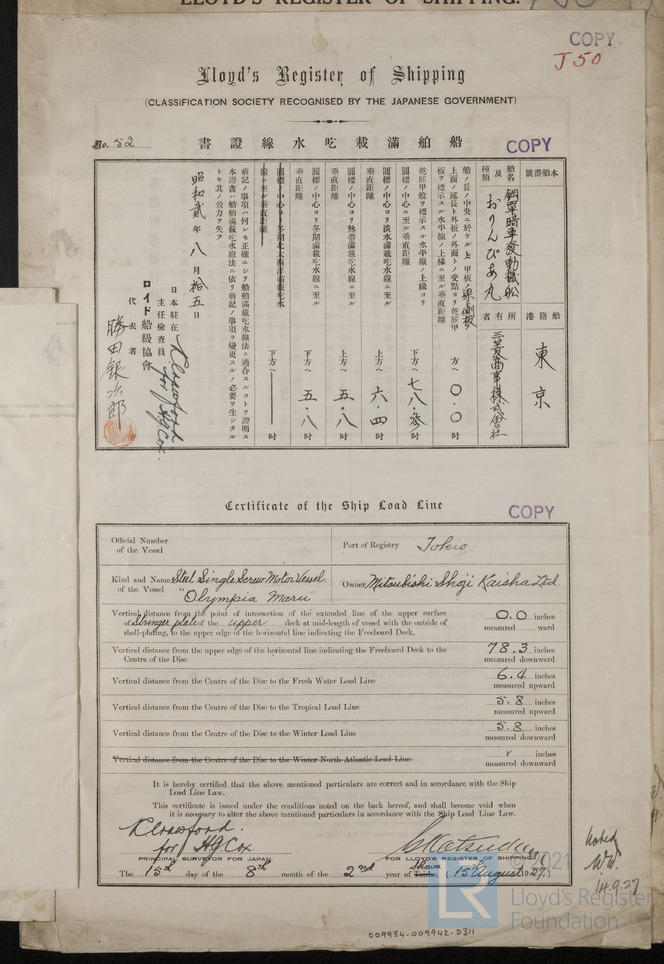 LLOYD'S REGISTER OF SHIPPING.
COPY
J50
Lloyd's Register of Shipping
(CLASSIFICATION SOCIETY RECOGNISED BY THE JAPANESE GOVERNMENT)
No. 52
船舶満載吃水線證書
COPY
本船番號
船籍港
東京
船名及種類
鋼單暗車發動機船
おりんぴあ丸
所有者
三菱商事株式會社
船ノ長ノ中央ニ於ケル上甲板ノ梁上側板
上面ノ延長ト外板ノ外面トノ交點ヨリ乾舷甲
板ヲ標示スル水平線ノ上緣ニ至ル垂直距離
方ヘ 〇.〇 吋
乾舷甲板ヲ標示スル水平線ノ上緣ヨリ
圓標ノ中心ニ至ル垂直距離
下方ヘ 七八.參 吋
圓標ノ中心ヨリ淡水滿載吃水線ニ至ル
垂直距離
上方ヘ 六.四 吋
圓標ノ中心ヨリ熱帶滿載吃水線ニ至ル
垂直距離
上方ヘ 五.八 吋
圓標ノ中心ヨリ冬期滿載吃水線ニ至ル
垂直距離
下方ヘ 五.八 吋
圓標ノ中心ヨリ冬期北大西洋滿載吃水
線ニ至ル垂直距離
下方ヘ 吋
前記ノ事項ハ何レモ正確ニシテ船舶滿載吃水線法ニ適合スルコトヲ證明ス
本證書ハ船舶滿載吃水線法ニ依リ前記ノ事項ヲ變更スルノ必要ヲ生シタル
トキ其ノ效力ヲ失フ
昭和貳年八月拾五日
日本駐在
主任檢査員
R Crawford
for H.G. Cox.
ロイド船級協會
代表者
勝田銀次郎
Certificate of the Ship Load Line
COPY
Official Number
of the Vessel
Port of Registry Tokio
Kind and Name Steel Single Screw Motor Vessel.
of the Vessel "Olympia Maru"
Owner, Mitsubishi Shoji Kaisha Ltd.
Vertical distance from the point of intersection of the extended line of the upper surface
of Stringer plate of the upper deck at mid-length of vessel with the outside of
shell-plating, to the upper edge of the horizontal line indicating the Freeboard Deck.
0.0 inches
measured ward
Vertical distance from the upper edge of the horizontal line indicating the Freeboard Deck to the
Centre of the Disc
78.3 inches
measured downward
Vertical distance from the Centre of the Disc to the Fresh Water Load Line
6.4 inches
measured upward
Vertical distance from the Centre of the Disc to the Tropical Load Line
5.8 inches
measured upward
Vertical distance from the Centre of the Disc to the Winter Load Line
5.8 inches
measured downward
Vertical distance from the Centre of the Disc to the Winter North Atlantic Load Line
inches
measured downward
It is hereby certified that the above mentioned particulars are correct and in accordance with the Ship
Load Line Law.
This certificate is issued under the conditions noted on the back hereof, and shall become void when
it is necessary to alter the above mentioned particulars in accordance with the Ship Load Line Law.
R Crawford.
for H.G. Cox
PRINCIPAL SURVEYOR FOR JAPAN
FOR LLOYD'S REGISTER OF SHIPPING.
The 15th day of the 8th month of the 2nd year of Taisho. Showa (15th August 1927.)
Noted
14.9.27
© 2021
LR Lloyd's Register
Foundation
009934-009942-0311